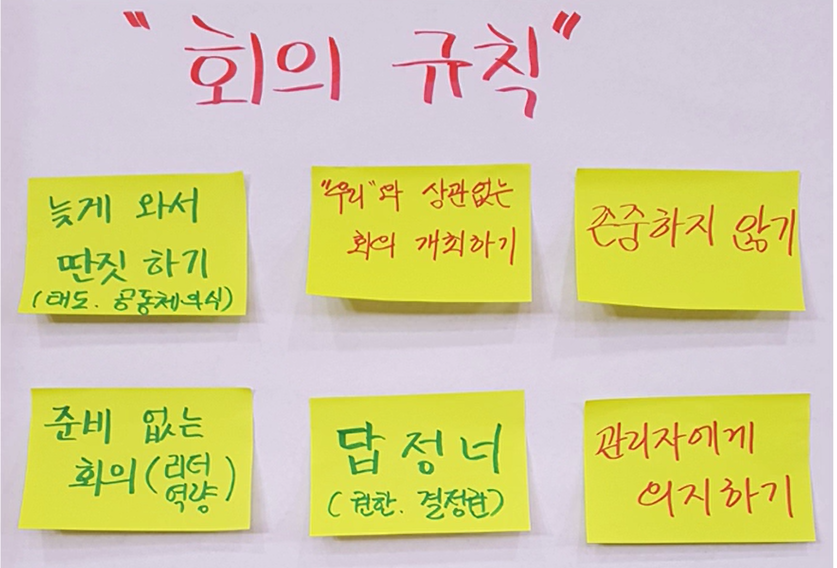 "회의 규칙"
늦게 와서
딴짓 하기
(태도. 공동체의식)
"우리"와 상관없는
회의 개최하기
존중하지 않기
준비 없는
회의(리더
역량)
답정너
(권한. 결정란)
관리자에게
의지하기